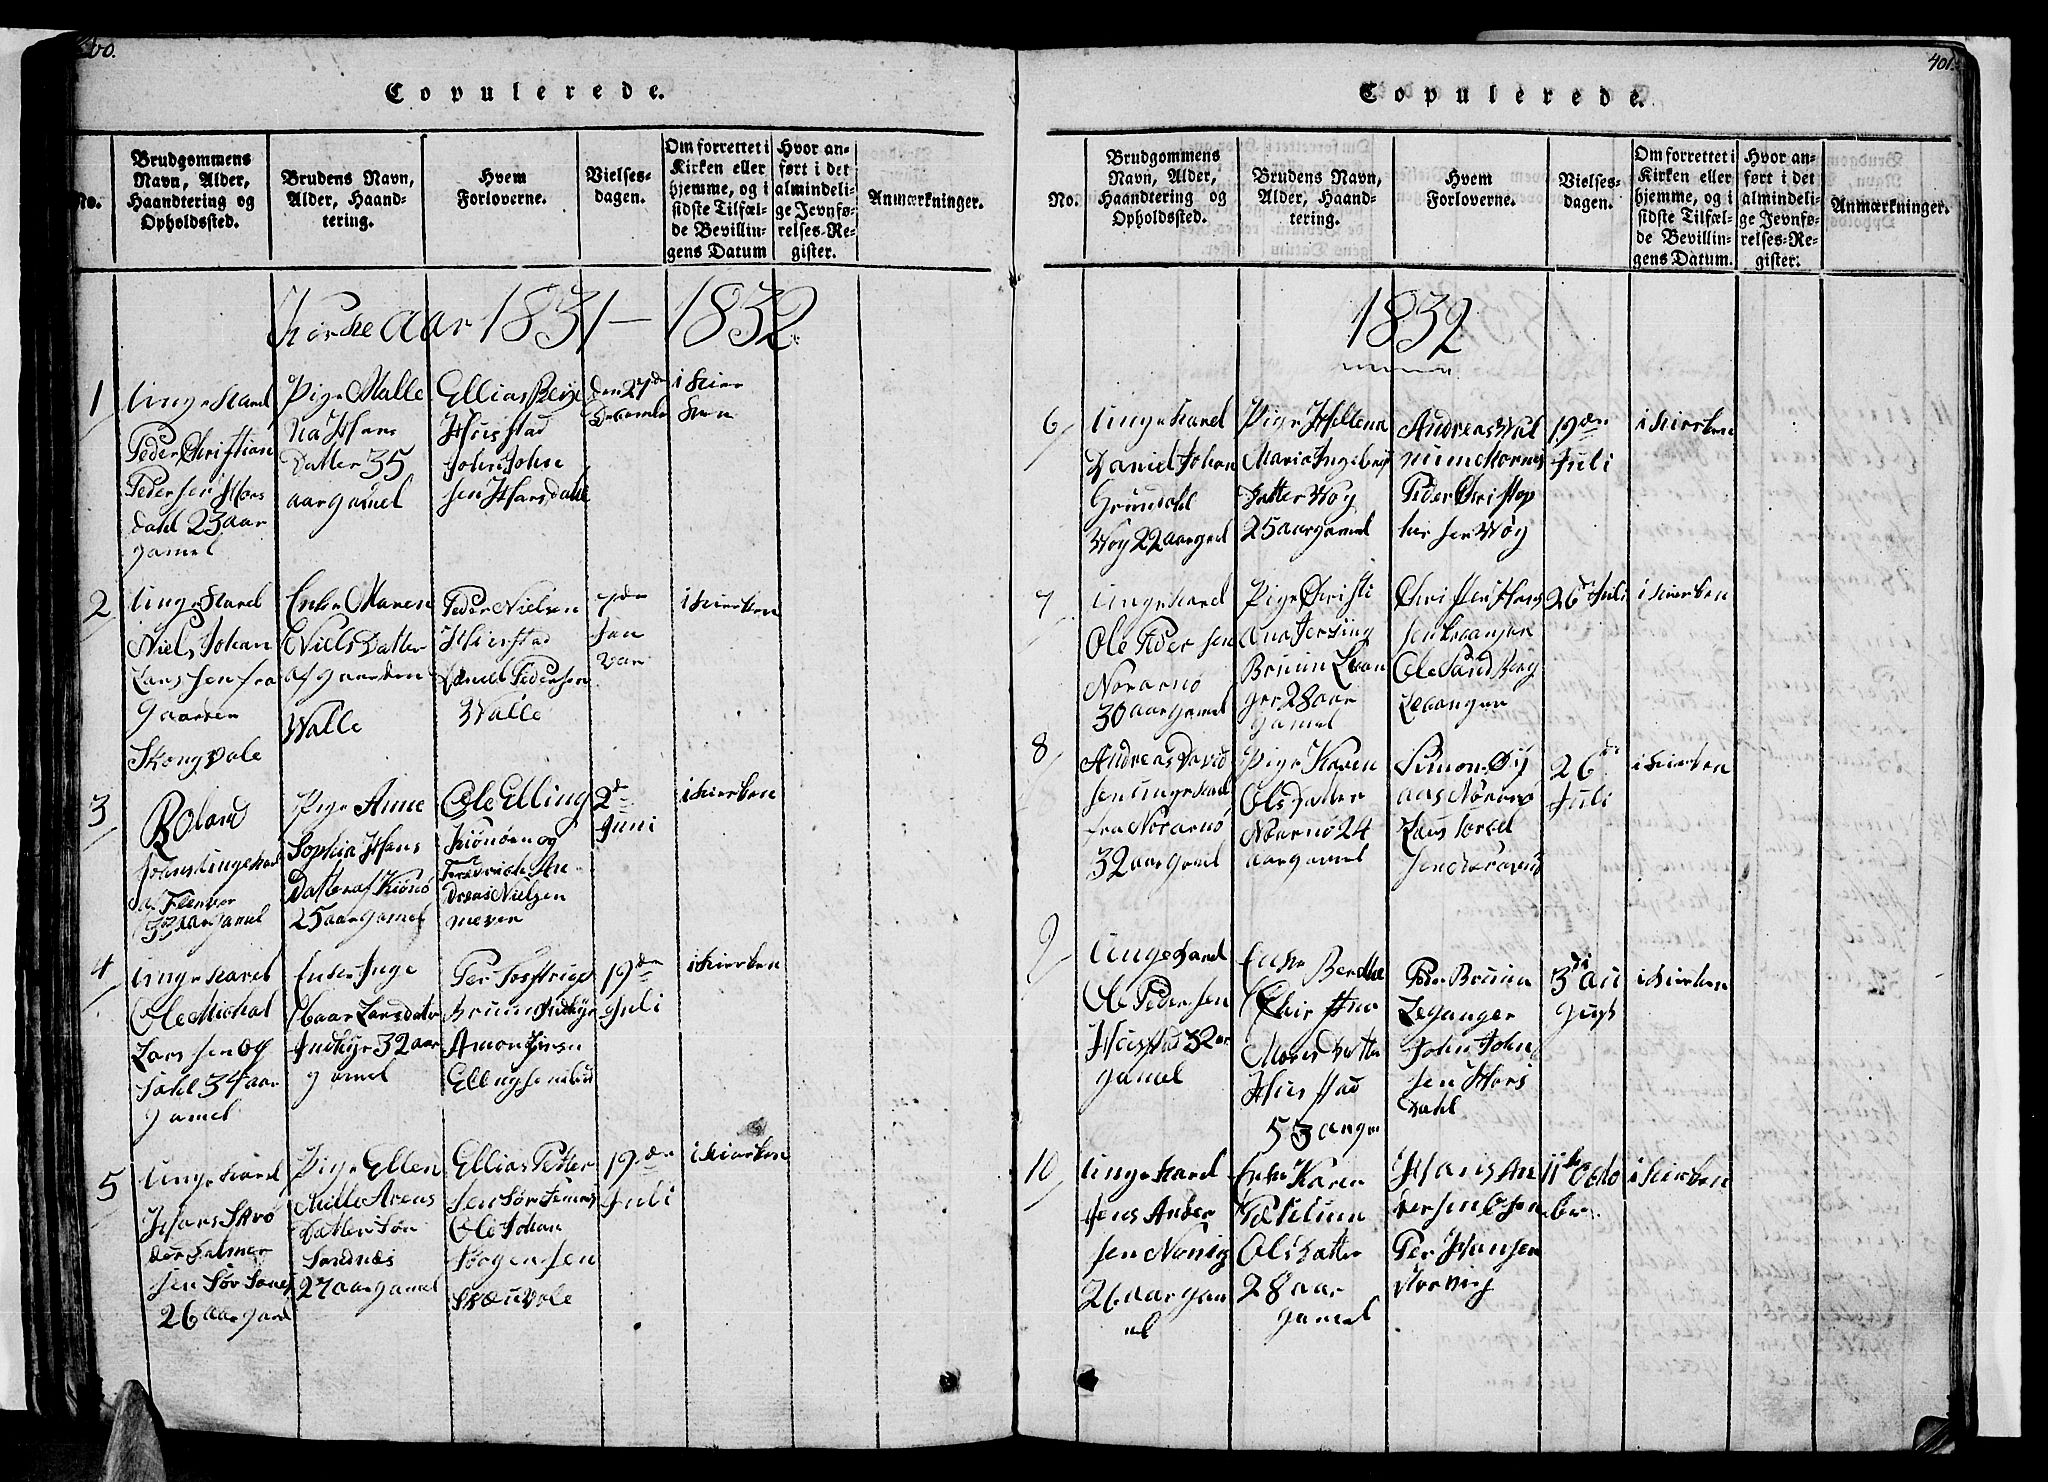 400.
Copulerede.
No.
Brudgommens
Navn, Alder,
Haandtering og
Opholdssted.
Brudens Navn,
Alder, Haand-
tering.
Hvem
Forloverne.
Vielses-
dagen.
Om forrettet i
Kirken eller
hjemme, og i
sidste Tilfæl-
de Bevillin-
gens Datum
Hvor an-
ført i det
almindeli-
ge Jevnfø-
relses-Re-
gister.
Anmærkninger.
Kirke aar 1831 – 1832
1
Unge Karl
Peder Christian
Pedersen Hors
dahl 23 aar
gamel
Pige Malle
na Hans
Datter 35
aar gamel
Ellias Beÿer
Husstad
John John
sen Harsdahl
den 27de
Decembr
i Kier
ken
2
Unge Karl
Niels Johan
Larssen fra
Gaarden
Skongvole
Enke Maren
Niels Datter
af Gaarden
Walle
Peder Nielsen
Husstad
Daniel Pedersen
Walle
7de
Jan
var
i Kierken
3
Roland
unge Karl
33 aar gamel
Pige Anne
Sophia Hans
Datter af Kiønø
25 aar gamel
Ole Elling
Kiønøen og
Fredrich An
dreas Nielsen
2de
Juni
i Kierken
4
Unge Karl
Ole Michal
Larssen
dahl 34 aar
gamel
Enke Inge
Larsdatter
Indhÿr 32 aar
gamel
Bruun Indhÿr
Amon
19de
Juli
i Kierken
5
Unge Karl
Hans Skrø
der Falmer
sen Sør
26 aar gamel
Pige Ellen
Mille Arens
Datter Sør
Sandnæs
27 aar gamel
Ellias Petter
sen Sør
Ole Johan
Jørgensen
Skauvole
19de
Juli
i Kierken
401.
Copulerede.
No.
Brudgommens
Navn, Alder,
Haandtering og
Opholdssted.
Brudens Navn,
Alder, Haand-
tering.
Hvem
Forloverne.
Vielses-
dagen.
Om forrettet i
Kirken eller
hjemme, og i
sidste Tilfæl-
de Bevillin-
gens Datum.
Hvor an-
ført i det
almindeli-
ge Jevnfø-
relses-Re-
gister.
Anmærkninger.
1832
6
Unge Karl
Daniel Johan
Grøndahl
Wog 22 aar gml
Pige Hellena
Maria Ingebrigt
Datter Wog
25 aar gamel
Andreas Wal
numc Hornes
Peder Christop
hersen Wog
19de
Juli
i Kierken
7
Unge Karl
Ole Peder sen
Norarnø
30 aar gamel
Pige Christi
ana Jersing
Bruun Leaan
ger 28 aar
gamel
Christen Hans
sen Leaanger
Ole Sand Berg
Leaanger
26de Juli
i Kierken
8
Andreas David
sen unge Karl
fra Norarnø
32 aar gamel
Pige Karen
Ols Datter
Norarnø 24
aar gamel
Simon
aas Norarnø
Lars Jacob
sen Norarnø
26de
Juli
i Kierken
9
Unge Karl
Ole Peder sen
Husstad 32 ar
gamel
Enke Berethe
Mons Datter
Husstad
53 aar gm
Peder Bruun
Leganger
John John
sen Hors
Dahl
3di Au
gust
i Kierken
10
Unge Karl
Jens Ander
sen Norvig
26 aar gam
el
Enke Karen
Petelina
Olsdatter
28 aar
gamel
Hans An
dersen
Per Hansen
Norvig
11te Octo
ber
i Kierken